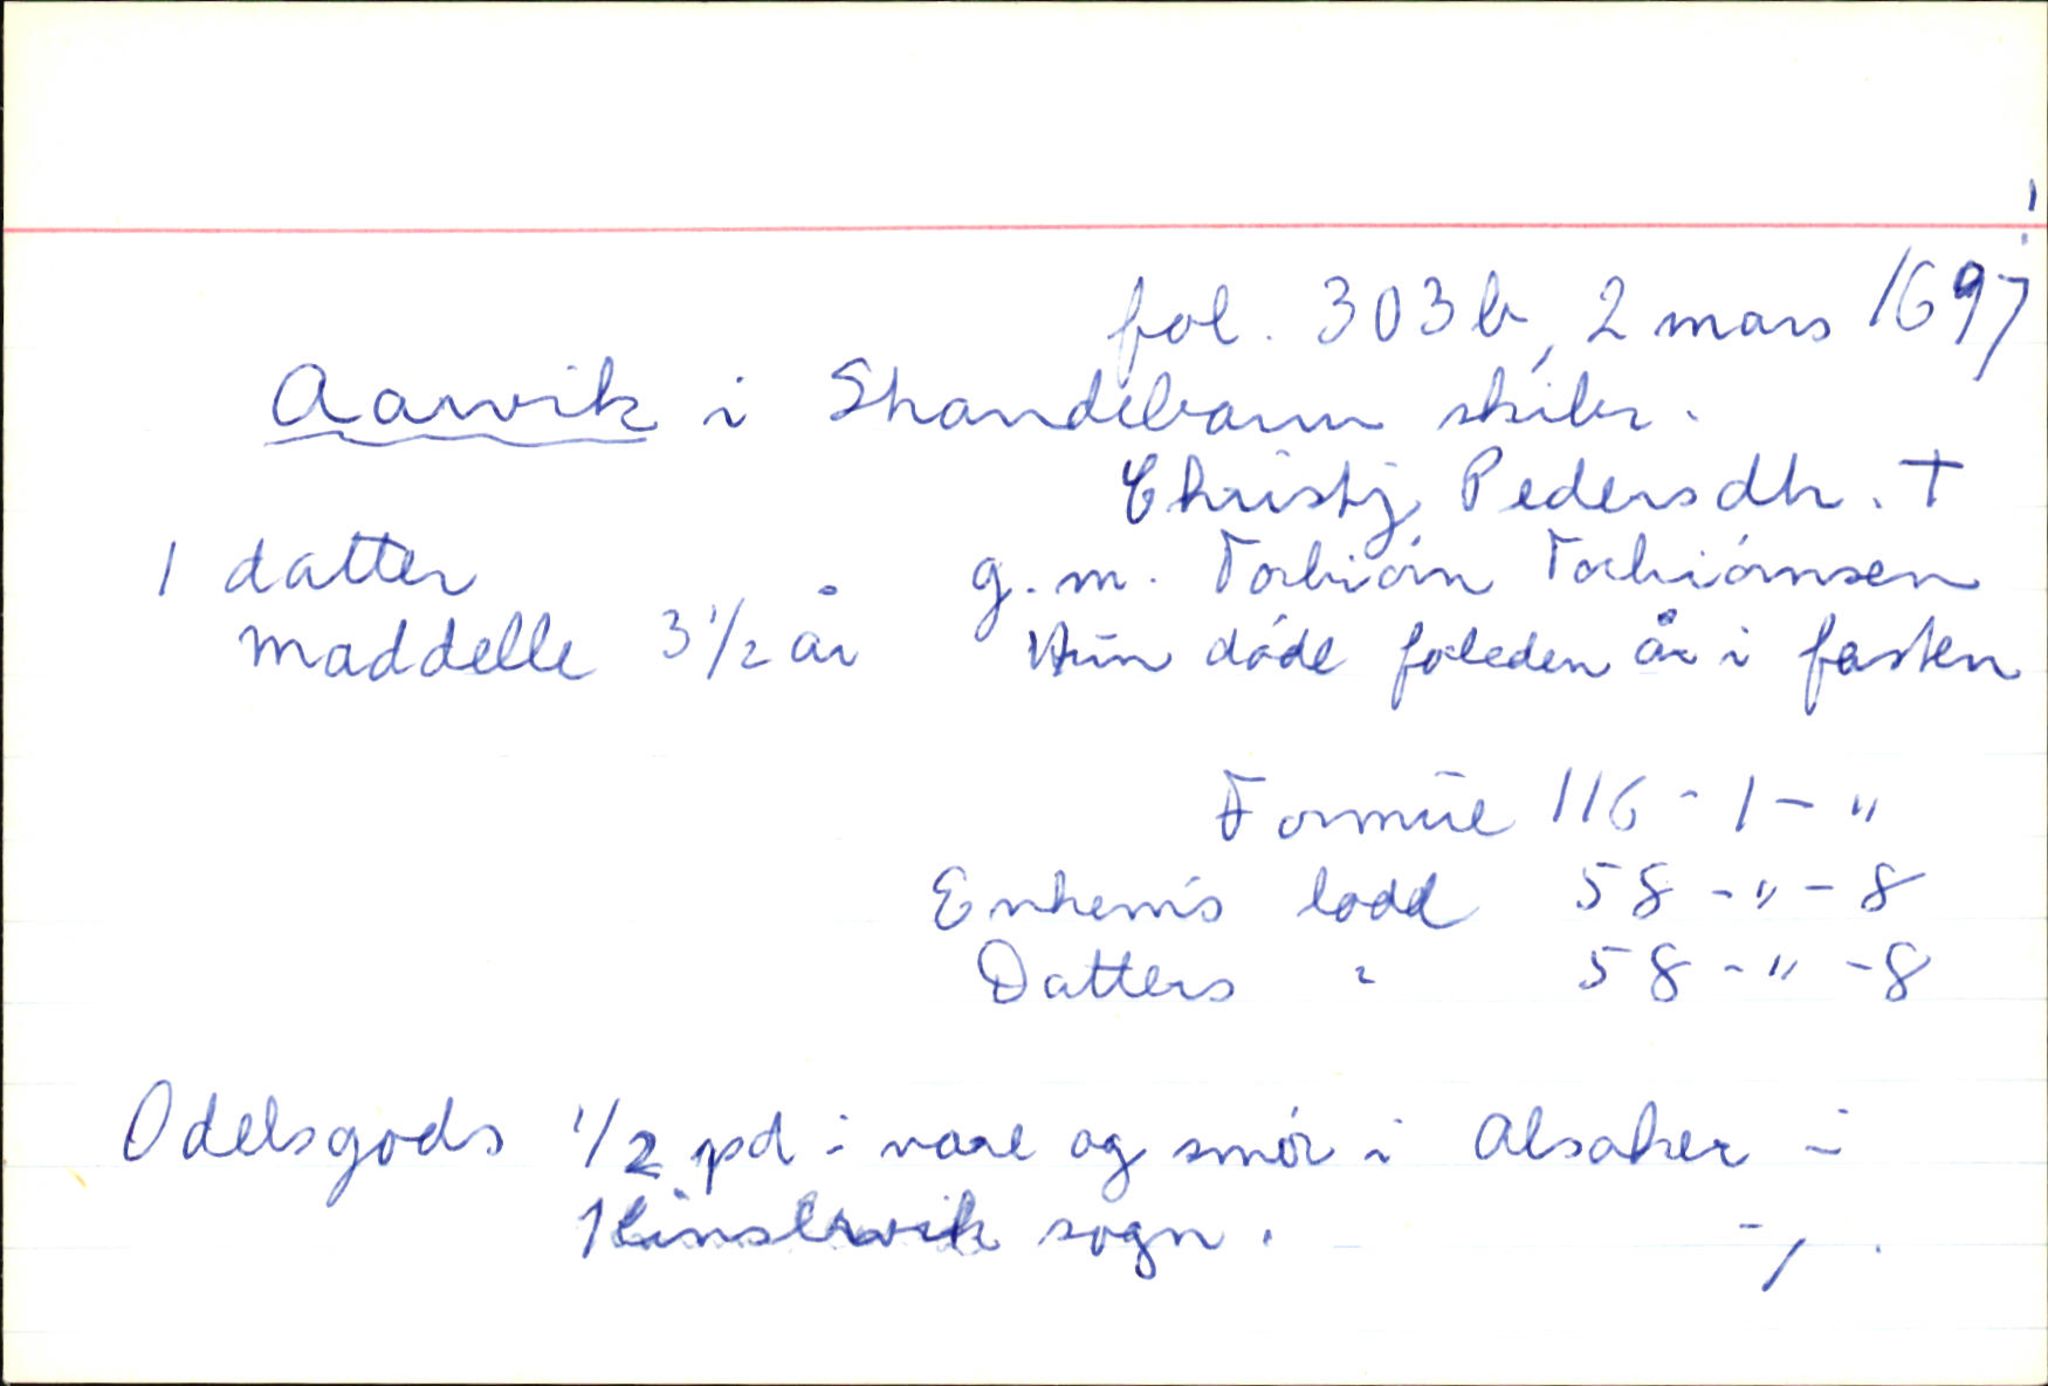 fol. 303b, 2 mars 1697
Aarvik i Strandebarm skibr.
Christj Pedersdtr. †
1 datter g.m. Torbiórn Torbiórnsen
Maddelle 3 1/2 år Hun döde forleden år i fasten
Formue 116 - 1 - "
Enkem's lodd 58 - " - 8
Datters " 58 - " - 8
Odelsgods 1/2 pd i vare og smör i Alsaker i
Kinservik sogn.